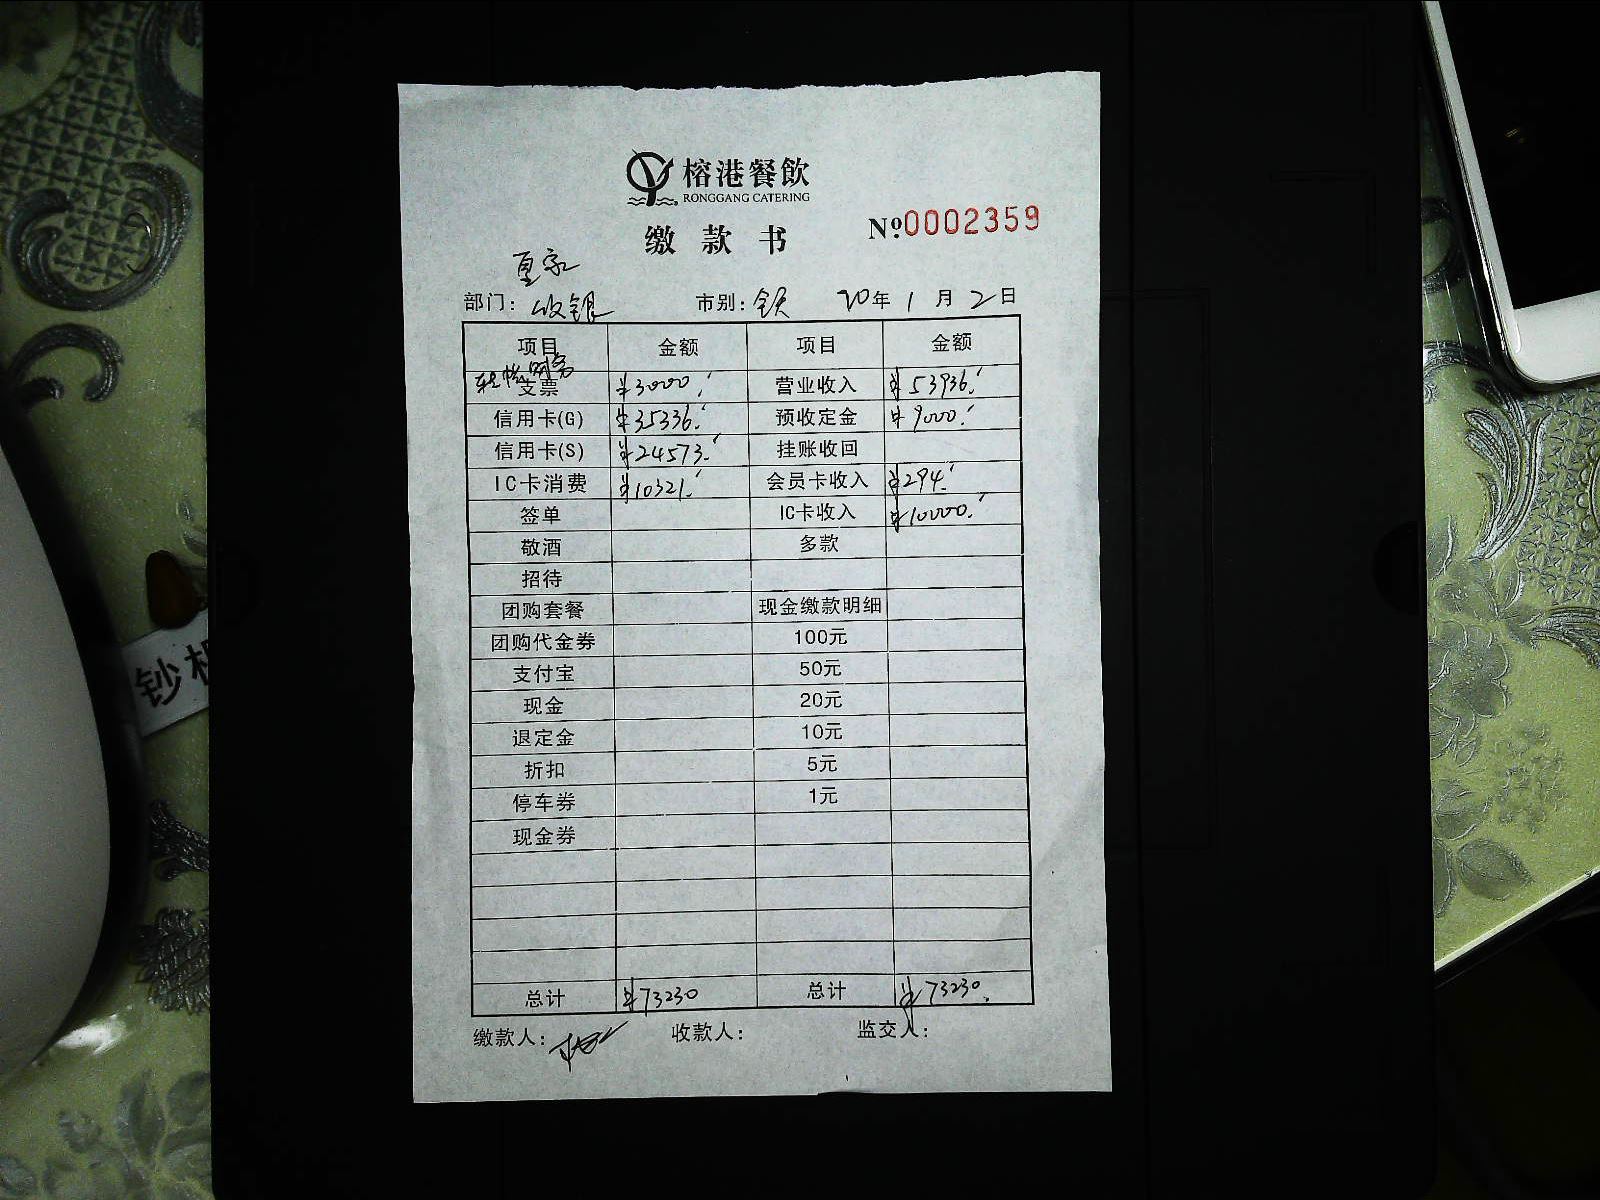 榕港餐飲
RONGGANG CATERING
缴款书
№0002359
皇家
部门: 收银 市别: 全天 20年 1月 2日
项目 金额 项目 金额
转帐财务
支票 ¥3000. 营业收入 ¥53936.
信用卡(G) ¥35336. 预收定金 ¥9000.
信用卡(S) ¥24573. 挂账收回
IC卡消费 ¥10321. 会员卡收入 ¥294.
签单 IC卡收入 ¥10000.
敬酒 多款
招待
团购套餐 现金缴款明细
团购代金券 100元
支付宝 50元
现金 20元
退定金 10元
折扣 5元
停车券 1元
现金券
总计 ¥73230 总计 ¥73230.
缴款人: 收款人: 监交人:
钞